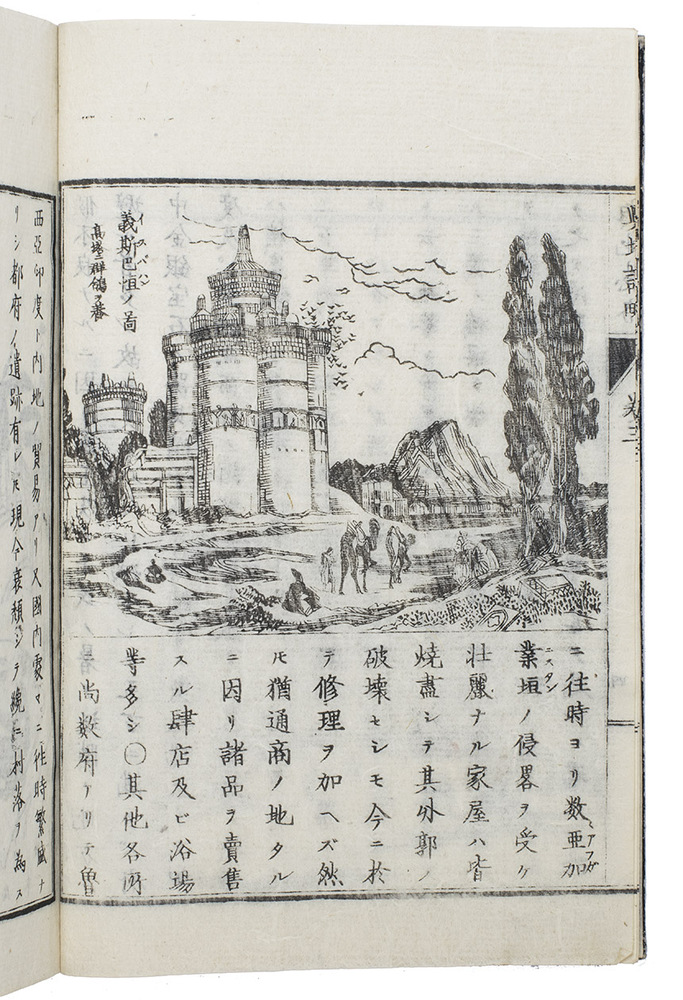 義斯巴恒ノ圖
高塔ニ群鴿ヲ養
ニ往時ヨリ数亜加
業垣ノ侵畧ヲ受ケ
壮麗ナル家屋ハ皆
燒盡シテ其外郭ノ
破壊セシモ今ニ於
テ修理ヲ加ヘズ然
𪜈猶通商ノ地タル
ニ因リ諸品ヲ賣售
スル肆店及ビ浴場
等多シ〇其他各所
尚数府アリテ魯
西亞印度ト内地ノ貿易アリ又國内處々ニ往時繁盛ナ
リシ都府ノ遺跡有レ𪜈現今衰頽シテ纔ニ村落ヲ為ス